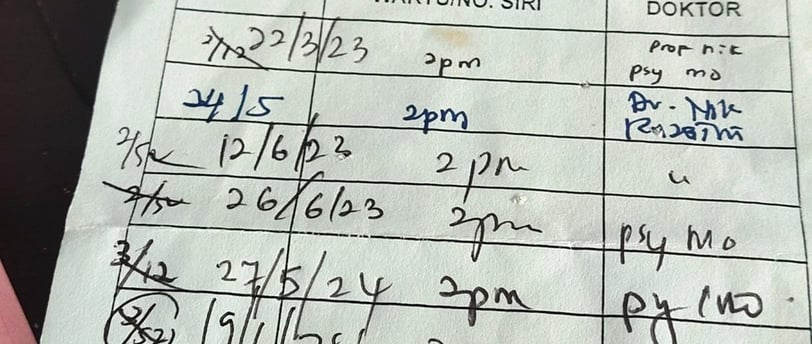 WAKTU/NO. SIRI DOKTOR
2/12 22/3/23 2pm Prof nik
psy mo
24/5 2pm Dr. Nik
2/52 12/6/23 2pm "
2/52 26/6/23 2pm psy Mo
3/12 27/5/24 2pm py / mo
2/52